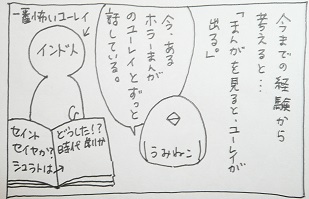 今までの経験から
考えると…
「まんがを見ると、ユーレイが
出る。」
今、ある
ホラーまんが
のユーレイとずっと
話している。
うみねこ
一番怖いユーレイ
インドト
どうした!?
時代劇か
セイント
セイヤか?
シュラトは→